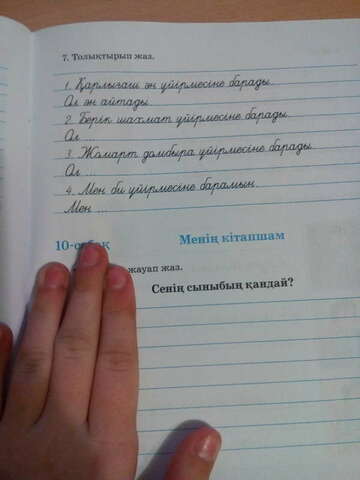 7. Толықтырып жаз.
1. Қарлығаш ән үйірмесіне барады.
Ол ән айтады.
2. Берік шахмат үйірмесіне барады.
Ол ...
3. Жомарт домбыра үйірмесіне барады.
Ол ...
4. Мен би үйірмесіне барамын.
Мен ...
Менің кітапшам
жауап жаз.
Сенің сыныбың қандай?